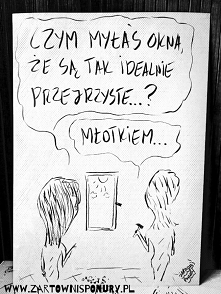 CZYM MYŁAŚ OKNA,
ŻE SĄ TAK IDEALNIE
PRZEJRZYSTE...?
MŁOTKIEM...
WWW.ZARTOWNISPONURY.PL